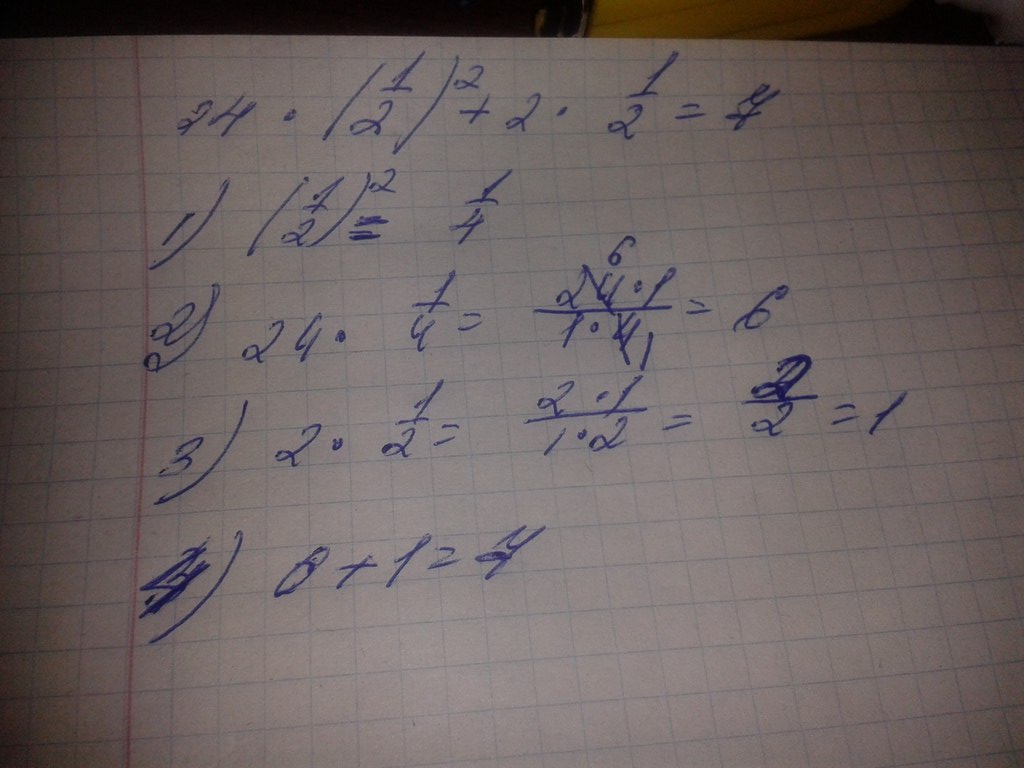 24 · (1/2)² + 2 · 1/2 = 7
1) (1/2)² = 1/4
2) 24 · 1/4 = 24 · 1 / 1 · 4 = 6
6
1
3) 2 · 1/2 = 2 · 1 / 1 · 2 = 2/2 = 1
4) 6 + 1 = 7